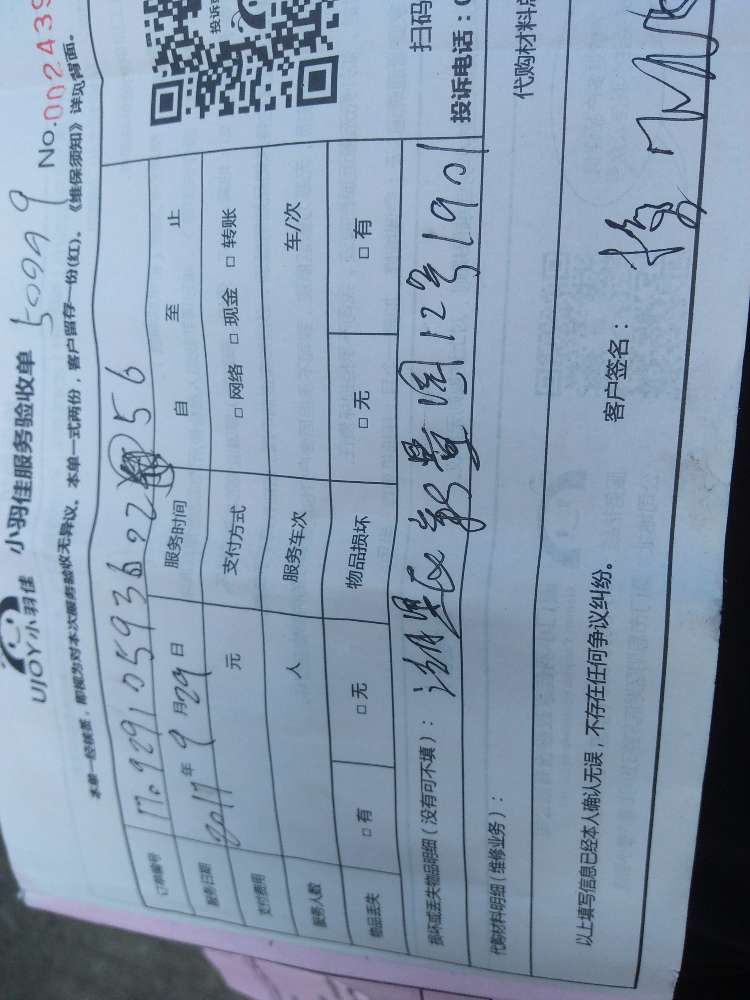 UJOY小羽佳 小羽佳服务验收单 50949 No.002439
本单一经核签，即视为对本次服务验收无异议。本单一式两份，客户留存一份(红)。《维保须知》详见背面。
订单编号 170929105936022 56
服务日期 2017年9月29日 服务时间 自 至 止
支付费用 元 支付方式 □ 网络 □ 现金 □ 转账
服务人数 人 服务车次 车/次
物品丢失 □ 有 □ 无 物品损坏 □ 无 □ 有
扫码
投诉电话：0
损坏或丢失物品明细（没有可不填）： 湖里区 园12号1901
代购材料明细（维修业务）： 代购材料总
以上填写信息已经本人确认无误，不存在任何争议纠纷。
客户签名：